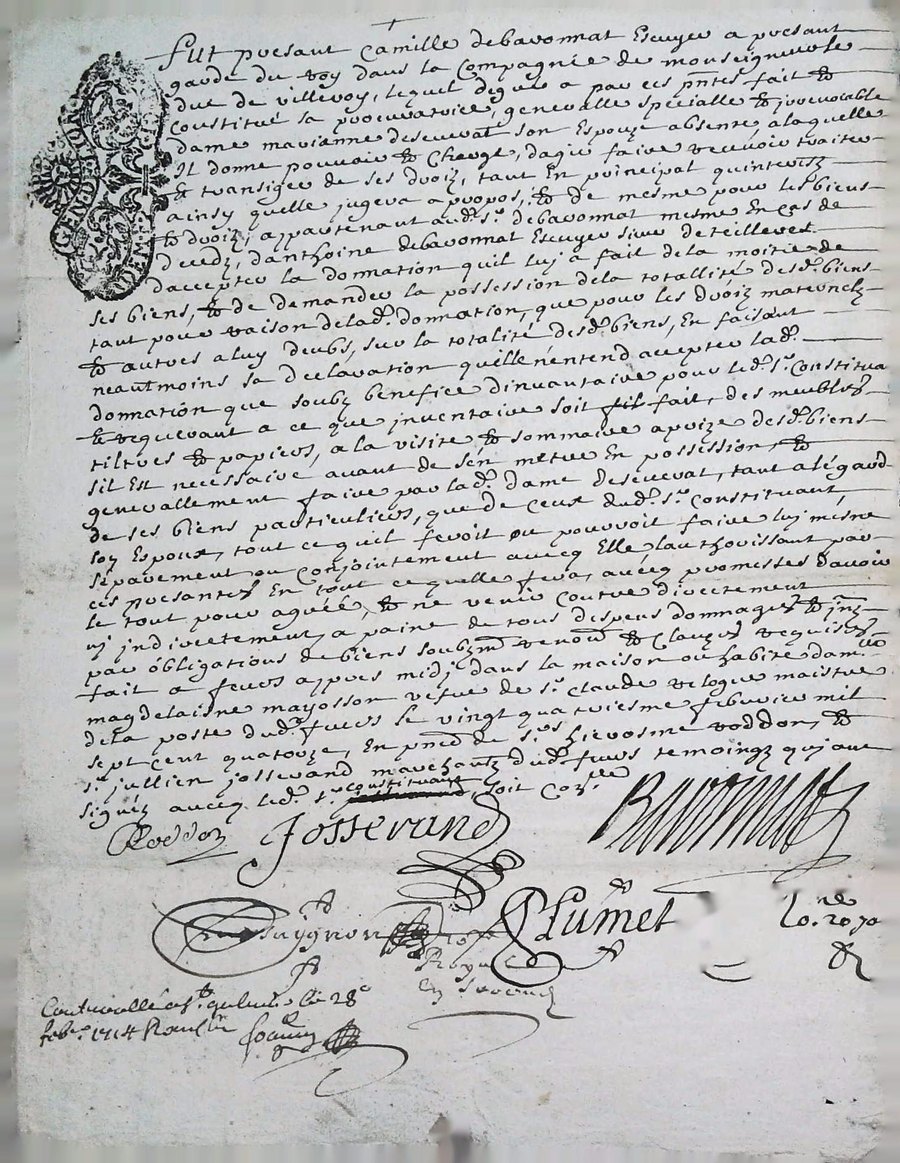 Fut presant Camille debavonnat Escuyer a presant
garde du roy dans la Compagnie de monseigneur le
duc de villeroy, lequel degres a par ces pntes fait et
constitué sa procuratrice, generalle specialle et irrevocable
dame marianne deseverat son Espouze absente, a laquelle
Il donne pouvoir et Charge, dagir faire recevoir traiter
et transiger de ses droiz, tant En principal quinterestz
ainsy quelle jugera a propos, et de mesme pour les biens
et droiz, appartenant aud. sr. debavonnat mesme En cas de
decedz, danthoine debavonnat Escuyer sieur deteilleret
daccepter la donnation quil luj a fait dela moitié de
ses biens, et de demander la possession dela totallité desd. biens
tant pour raison delad. donnation, que pour les droiz maternelz
et autres a luy deubs, sur la totalité desd. biens, En faisant
neautmoins sa declaration quelle nentend accepter lad.
donnation que soubz benefice dinvantaire pour led. sr. Constituant
Et requerant a ce que inventaire soit fait, des meubles
tiltres et papiers, a la visite et sommaire aprize desd. biens
sil Est necessaire avant de sén metre En possession, et
generallement faire par lad. dame deseverat, tant a légard
de ses biens particuliers, que de ceux dud. sr. constituant,
son Espoux, tout ce quil feroit ou pourroit faire luj mesme
séparement ou conjointement avecq Elle lauthorissant par
ces presantes En tout ce quelle fera, avecq promesses davoir
le tout pour agreé, et ne venir contre directement
nj indirectement, a paine de tous despens dommages et intz
par óbligations de biens soubzm renon et Clauzes requises
fait a feurs appres midj dans la maison ou habite dam
magdelaisne mayosson vefve de sr. Claude relogue maistre
dela poste dud. feurs le vingt quatriesme febvrier mil
sept cent quatorze, En pnce de srs hierosme roddon, et
sr. jullien josserand marchantz dud. feurs temoingz quj ont
signéz avecq led. sr. constituant, soit con.lle
Roddon Josserand Bavonnat
Clumet
Royal
Controllé a le 28e
feb. 1714